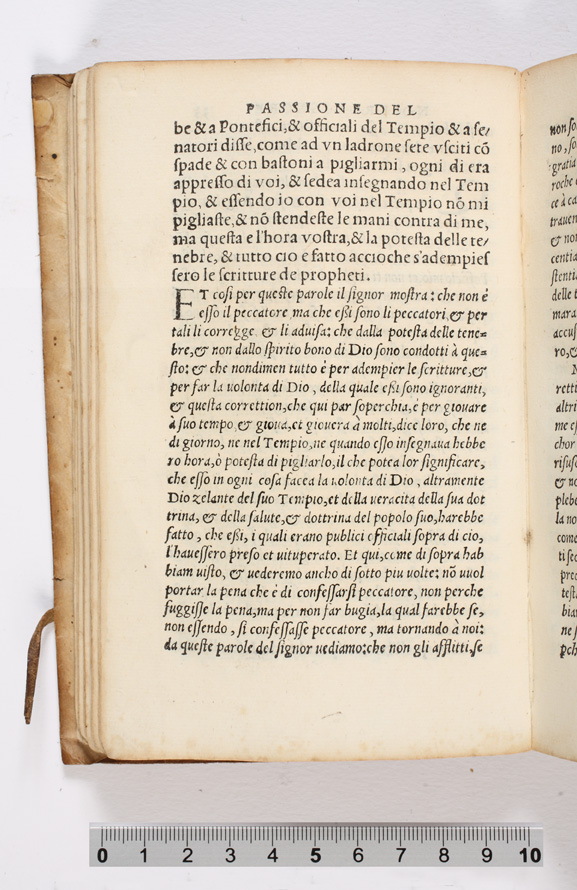 PASSIONE DEL
be & a Pontefici, & officiali del Tempio & a se/
natori disse, come ad vn ladrone sete vsciti cō
spade & con bastoni a pigliarmi, ogni di era
appresso di voi, & sedea insegnando nel Tem
pio, & essendo io con voi nel Tempio nō mi
pigliaste, & nō stendeste le mani contra di me,
ma questa e l'hora vostra, & la potesta delle te/
nebre, & tutto cio e fatto accioche s'adempies
sero le scritture de propheti.
ET cosi per queste parole il signor mostra: che non é
esso il peccatore, ma che essi sono li peccatori, & per
tali li corregge, & li aduisa: che dalla potesta delle tene=
bre, & non dallo spirito bono di Dio sono condotti à que=
sto: & che nondimen tutto è per adempier le scritture, &
per far la uolonta di Dio, della quale essi sono ignoranti,
& questa correttion, che qui par soperchia, è per giouare
à suo tempo, & gioua, et giouera à molti, dice loro, che ne
di giorno, ne nel Tempio, ne quando esso insegnaua hebbe
ro hora, ò potesta di pigliarlo, il che potea lor significare,
che esso in ogni cosa facea la uolonta di Dio, altramente
Dio zelante del suo Tempio, et della ueracita della sua dot
trina, & della salute, & dottrina del popolo suo, harebbe
fatto, che essi, i quali erano publici officiali sopra di cio,
l'hauessero preso et uituperato. Et qui, come di sopra hab
biam uisto, & uederemo ancho di sotto piu uolte: nō uuol
portar la pena che è di confessarsi peccatore, non perche
fuggisse la pena, ma per non far bugia, la qual farebbe se,
non essendo, si confessasse peccatore, ma tornando à noi:
da queste parole del signor uediamo: che non gli afflitti, se
non so
no, so
gratia
roche
ce à ca
trauen
& non
centia
stenti
delle t
mara
accus
ro, &
retti
altri
me es
chor
risusc
& no
plebe
la no
come
ti sec
prec
test
bian
ne s
pch
0 1 2 3 4 5 6 7 8 9 10